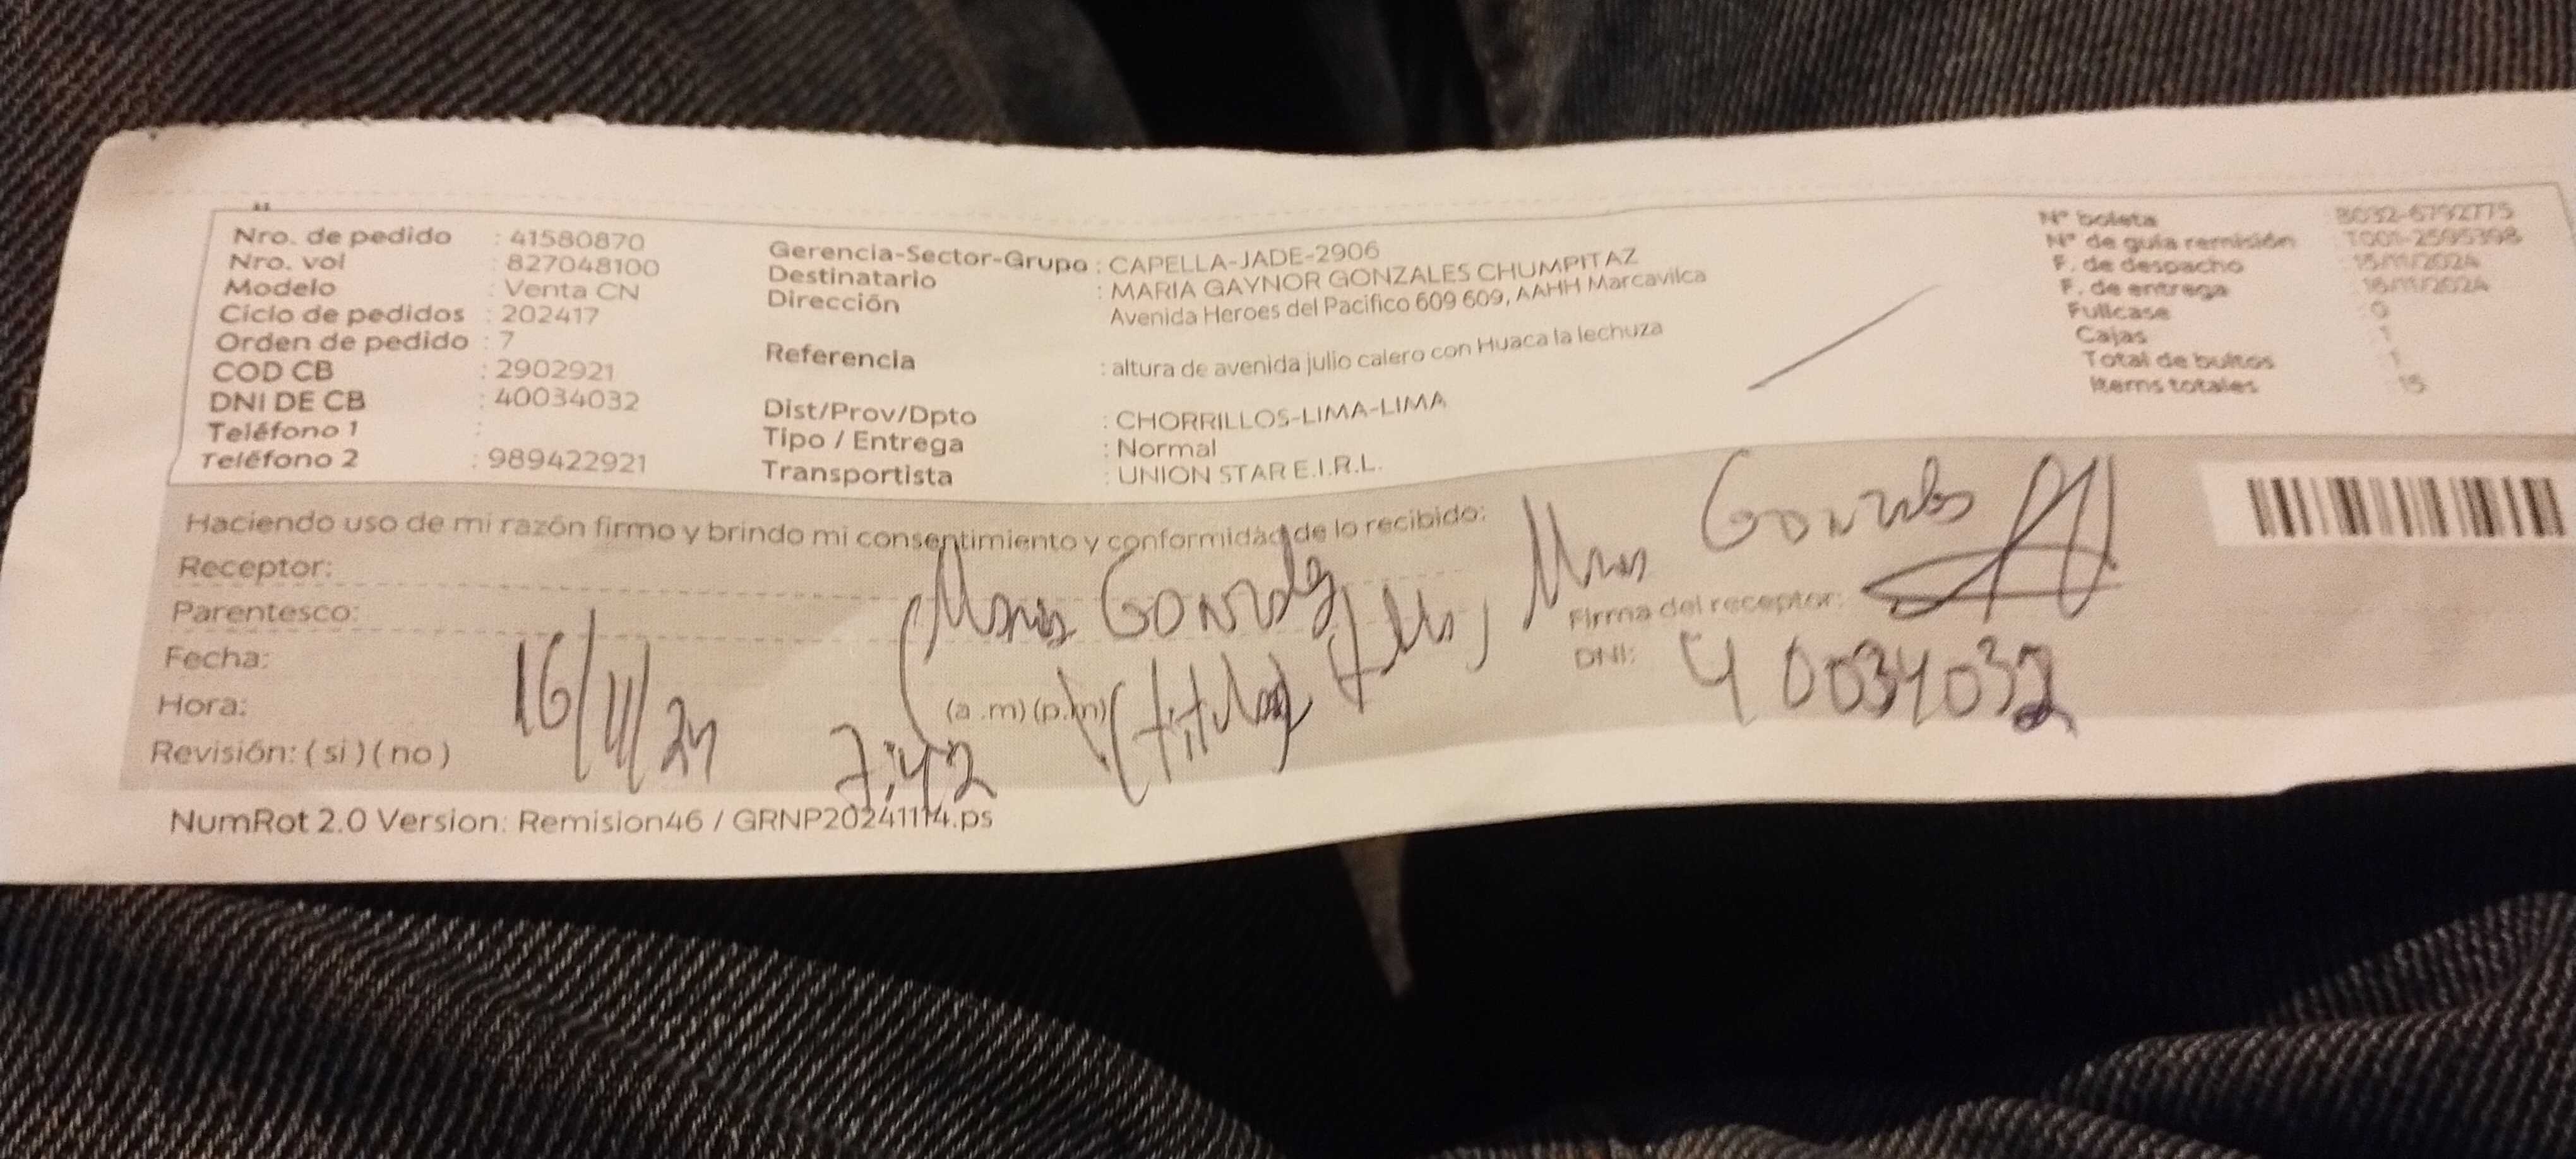 Nro. de pedido : 41580870
Nro. vol : 827048100
Modelo : Venta CN
Ciclo de pedidos : 202417
Orden de pedido : 7
COD CB : 2902921
DNI DE CB : 40034032
Teléfono 1 :
Teléfono 2 : 989422921
Gerencia-Sector-Grupo : CAPELLA-JADE-2906
Destinatario : MARIA GAYNOR GONZALES CHUMPITAZ
Dirección : Avenida Heroes del Pacifico 609 609, AAHH Marcavilca
Referencia : altura de avenida julio calero con Huaca la lechuza
Dist/Prov/Dpto : CHORRILLOS-LIMA-LIMA
Tipo / Entrega : Normal
Transportista : UNION STAR E.I.R.L.
N° boleta B032-6792775
N° de guía remisión T001-2595398
F. de despacho 15/11/2024
F. de entrega 16/11/2024
Fullcase : 0
Cajas 1
Total de bultos 1
Items totales 15
Haciendo uso de mi razón firmo y brindo mi consentimiento y conformidad de lo recibido:
Receptor:
Parentesco:
Fecha: 16/11/24
Hora: 7:42 (a .m) (p.m)
Revisión: ( si ) ( no )
(titular
Firma del receptor:
DNI: 40034032
NumRot 2.0 Version: Remision46 / GRNP20241114.ps